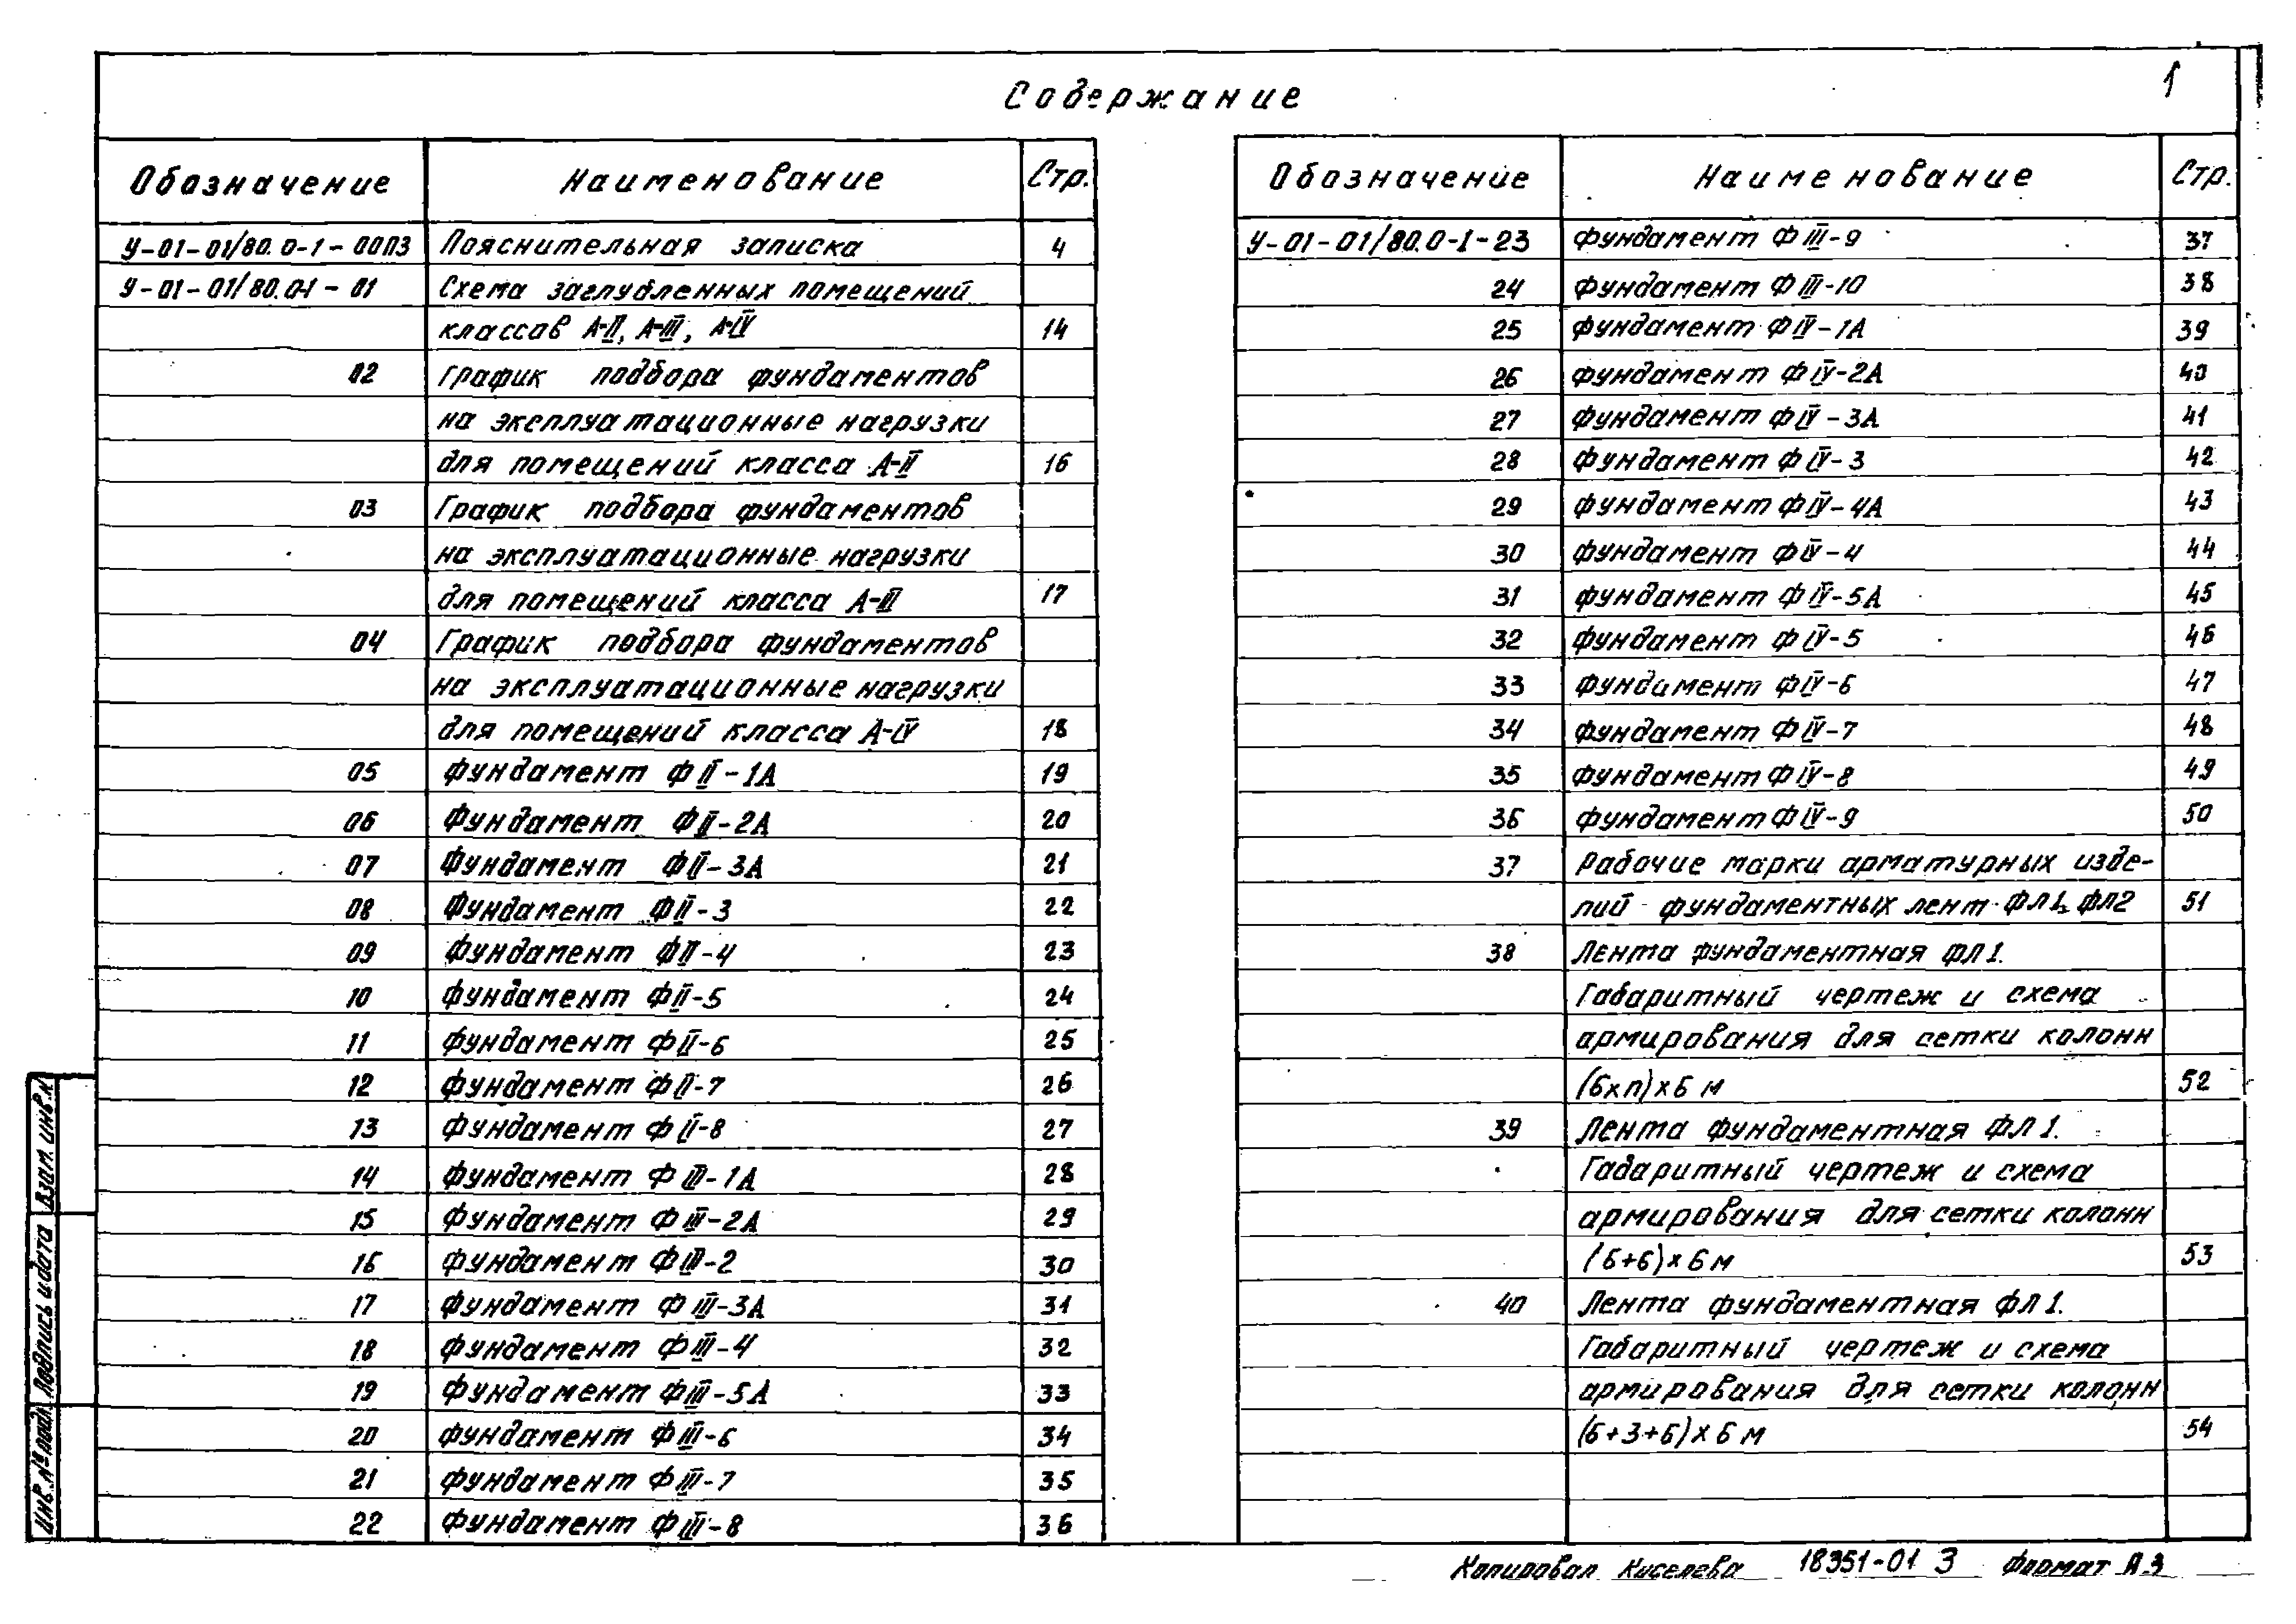 Содержание
1
Обозначение Наименование Стр.
У-01-01/80.0-1-00ПЗ Пояснительная записка 4
У-01-01/80.0-1-01 Схема заглубленных помещений
классов А-II, А-III, А-IV 14
02 График подбора фундаментов
на эксплуатационные нагрузки
для помещений класса А-II 16
03 График подбора фундаментов
на эксплуатационные нагрузки
для помещений класса А-III 17
04 График подбора фундаментов
на эксплуатационные нагрузки
для помещений класса А-IV 18
05 Фундамент ФII-1А 19
06 Фундамент ФII-2А 20
07 Фундамент ФII-3А 21
08 Фундамент ФII-3 22
09 Фундамент ФII-4 23
10 Фундамент ФII-5 24
11 Фундамент ФII-6 25
12 Фундамент ФII-7 26
13 Фундамент ФII-8 27
14 Фундамент ФIII-1А 28
15 Фундамент ФIII-2А 29
16 Фундамент ФIII-2 30
17 Фундамент ФIII-3А 31
18 Фундамент ФIII-4 32
19 Фундамент ФIII-5А 33
20 Фундамент ФIII-6 34
21 Фундамент ФIII-7 35
22 Фундамент ФIII-8 36
Обозначение Наименование Стр.
У-01-01/80.0-1-23 Фундамент ФIII-9 37
24 Фундамент ФIII-10 38
25 Фундамент ФIV-1А 39
26 Фундамент ФIV-2А 40
27 Фундамент ФIV-3А 41
28 Фундамент ФIV-3 42
29 Фундамент ФIV-4А 43
30 Фундамент ФIV-4 44
31 Фундамент ФIV-5А 45
32 Фундамент ФIV-5 46
33 Фундамент ФIV-6 47
34 Фундамент ФIV-7 48
35 Фундамент ФIV-8 49
36 Фундамент ФIV-9 50
37 Рабочие марки арматурных изде-
лий фундаментных лент ФЛ1, ФЛ2 51
38 Лента фундаментная ФЛ1.
Габаритный чертеж и схема
армирования для сетки колонн
(6xn)x6 м 52
39 Лента фундаментная ФЛ1.
Габаритный чертеж и схема
армирования для сетки колонн
(6+6)x6 м 53
40 Лента фундаментная ФЛ1.
Габаритный чертеж и схема
армирования для сетки колонн
(6+3+6)x6 м 54
Взам. инв. №
Подпись и дата
Инв. № подл.
Копировал Киселева 18351-01 3 Формат А3